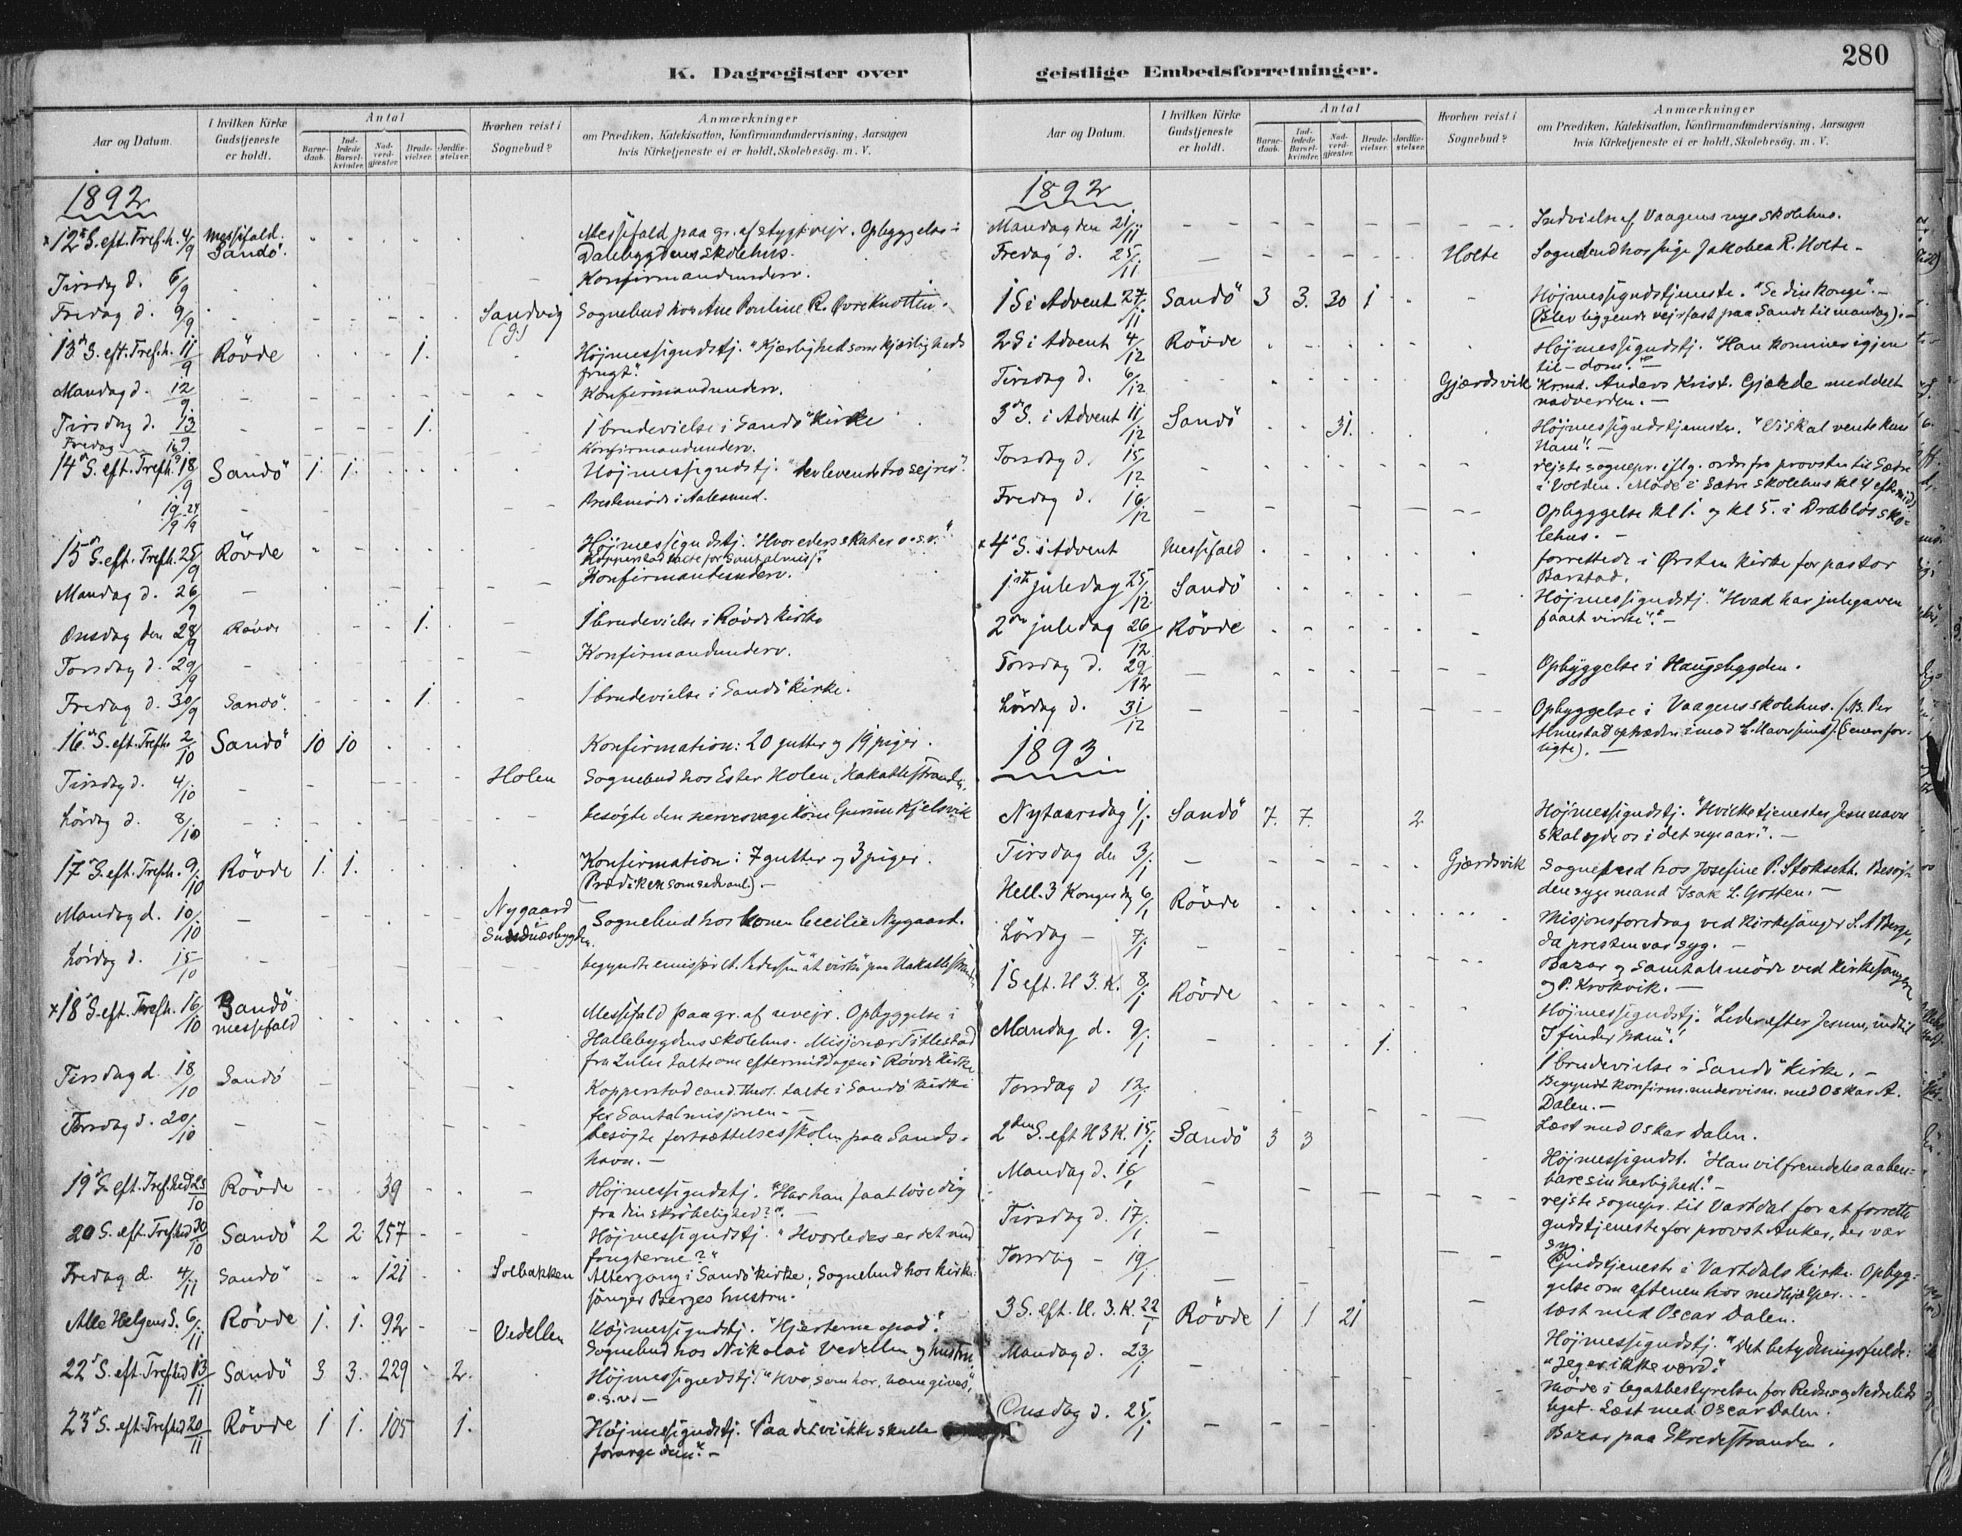 280
K. Dagregister over geistlige Embedsforretninger.
Aar og Datum.
I hvilken Kirke
Gudstjeneste
er holdt.
Antal
Barne-
daab.
Ind-
ledede
Barsel-
kvinder.
Nad-
verd-
gjæster.
Brude-
vielser.
Jordfæ-
stelser.
Hvorhen reist i
Sognebud?
Anmærkninger
om Prædiken, Katekisation, Konfirmandundervisning, Aarsagen
hvis Kirketjeneste ei er holdt, Skolebesög. m. V.
1892
×12te S. eft. Trefh. 4/9 Messefald. Sandö. Messefald paa gr. af stygt vejr. Opbyggelse i
Dalebygdens skolehus.
Tirsdag d. 6/9 Konfirmandunderv.
Fredag d. 9/9 Sandvig Sognebud hos Ane Pouline R.
13de S. eft. Trefh. 11/9 Rövde 1. Højmessigudstj. "Kjærlighed som kjærligheds
frugt".
Mandag d. 12/9 Konfirmandunderv.
Tirsdag d. 13/9 1. 1 brudevielse i Sandö kirke
Fredag 16/9 Konfirmandunderv.
14de S. eft. Trefh. 18/9 Sandö 1. 1. Højmessigudstj. "Den levende tro sejrer".
19/9 24/9 Prestemøde i Aalesund.
15de S. eft. Trefh. 25/9 Rövde Højmessigudstj. "Hvor eders skat er o.s.v."
Kopperstad talte for Santalmissj.
Mandag d. 26/9 Konfirmandunderv.
Onsdag den 28/9 Rövde 1. 1 brudevielse i Rövde kirke
Torsdag d. 29/9 Konfirmandunderv.
Fredag d. 30/9 Sandö. 1. 1 brudevielse i Sandö kirke.
16de S. eft. Trefh. 2/10 Sandö 10 10 Konfirmation: 20 gutter og 19 piger.
Tirsdag d. 4/10 Holen Sognebud hos Ester Holen, Hakallestranden.
Lördag d. 8/10 besøgte den nervesvage kone Gurine Kjelsvik
17de S. eft. Trefh. 9/10 Rövde 1. 1. Konfirmation: 7 gutter og 3 piger.
(Prædiken som sedvanl.) –
Mandag d. 10/10 Nygaard Sognebud hos konen Cecilie Nygaard.
Lördag d. 15/10 begyndte emissær Pedersen at virke paa Hakallestranden
×18de S. eft. Trefh. 16/10 Sandö messefald Messefald paa gr. af uvejr. Opbyggelse i
Hallebygdens skolehus. Misjonær Titlestad
fra Zulu talte om eftermiddagen i Rövde kirke
Tirsdag d. 18/10 Sandö Kopperstad cand. theol. talte i Sandö kirke
for Santalmisjonen. –
Torsdag d. 20/10 besøgte fortsættelsesskolen paa Sands-
havn. –
19de S. eft. Trefhed 23/10 Rövde 39 Højmessigudstj. "Har han faat løse dig
fra din skrøbelighed?". –
20 S. eft. Trefhed 30/10 Sandö 2 2 257 Højmessigudstj. "Hvorledes er det med
frugterne?"
Fredag d. 4/11 Sandö 121 Solbakken Altergang i Sandö kirke; Sognebud hos kirke-
sanger Berges hustru.
Alle Helgens S. 6/11 Rövde 1. 1. 92 Vedellen Højmessigudstj. "Hjerterne opad".
Sognebud hos Nikolai Vedellen og hustru
22de S. eft. Trefhed 13/11 Sandö 3 3. 229 2. Højmessigudstj. "Hvo, som har, ham gives",
o.s.v. –
23de S. eft. Trefhed 20/11 Rövde 1 1. 105 1. Højmessigudstj. "Paa det vi ikke skulle
forarge dem". –
1892
Mandag den 21/11 Indvielse af Vaagens nye skolehus.
Fredag d. 25/11 Holte Sognebud hos pige Jakobea R. Holte. –
1 S i Advent 27/11 Sandö 3 3. 20 1 Højmessigudstjeneste. "Se din konge". –
(Blev liggende vejrfast paa Sande til mandag). –
2 S i Advent 4/12 Rövde Højmessigudstj. "Han kommer igjen
til – dom". –
Tirsdag d. 6/12 Gjærdsvik Krmd. Anders Krist. Gjærde meddelt
nadverden. –
3de S. i Advent 11/12 Sandö 31. Højmessigudstjeneste. "Vi skal vente kun
ham". –
Torsdag d. 15/12 rejste sognepr. iflg. ordre fra provsten til Sætre
i Volden. Møde i Sætre skolehus kl 4 eftmid.
Fredag d. 16/12 Opbyggelse kl 1. og kl 5. i Drabløs sko-
lehus. –
×4de S. i Advent Messefald forrettede i Ørsten kirke for pastor
Barstad.
1ste juledag 25/12 Sandö Højmessigudstj. "Hvad har julegaven
faaet virke". –
2den juledag 26/12 Rövde
Torsdag d. 29/12 Opbyggelse i Haugsbygden.
Lördag d. 31/12 Opbyggelse i Vaagens skolehus.
1893.
Nytaarsdag 1/1 Sandö 7. 7. 2 Højmessigudstj. "Hvilke tjenester Jesu navn
skal yde os i det nye aar". –
Tirsdag den 3/1 Gjærdsvik Sognebud hos Josefine P. Stokseth. Besøgte
den syge mand Isak L. Gosten. –
Hell. 3 Kongersdag 6/1 Rövde Misjonsforedrag ved kirkesanger S. A Berge,
da presten var syg. –
Lördag – 7/1 Bazar og Samtalemøde ved kirkesangeren
og P. Krokvik. –
1 S eft. H. 3. K. 8/1 Rövde Højmessigudstj. "Leder efter Jesum, indtil
I finder ham".
Mandag d. 9/1 1. 1 brudevielse i Sandö kirke. –
Torsdag d 12/1 Begyndt konfirm.undervisn. med Oskar A.
Dalen. –
Læst med Oskar Dalen.
2den S. eft H 3 K. 15/1 Sandö 3 3 Højmessigudst. "Han vil fremdeles aaben-
bare sin herlighed". –
Mandag d. 16/1 rejste sognepr. til Vartdal for at forrette
gudstjeneste for provst Anker, der var
syg
Tirsdag d. 17/1 Gudstjeneste i Vartdals kirke. Opbyg-
gelse om aftenen hos medhjælper.
Torsdag – 19/1 læst med Oscar Dalen.
3 S. eft. H. 3. K. 22/1 Rövde 1 1 21 Højmessigudstj. "Det betydningsfulde:
"Jeg er ikke værd".
Mandag d. 23/1 Møde i legatbestyrelsen for
legat. Læst med Oscar Dalen.
Onsdag d. 25/1 Bazar paa Skredestranda.